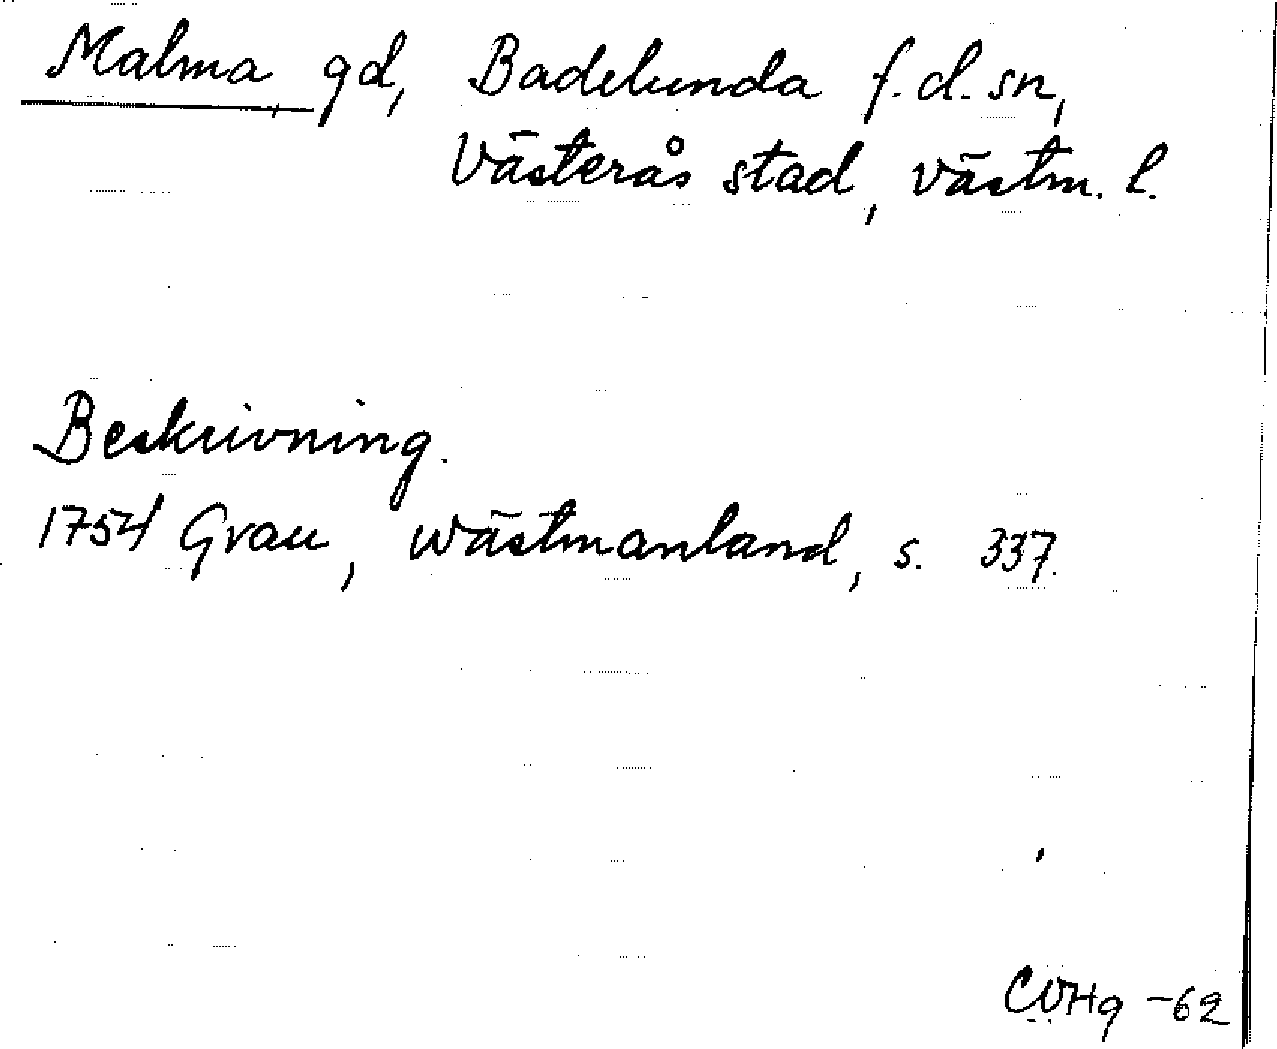 Malma, gd, Badelunda f.d. sn,
Västerås stad, Västm. l.
Beskrivning.
1754 Grau, Wästmanland, s. 337.
-62